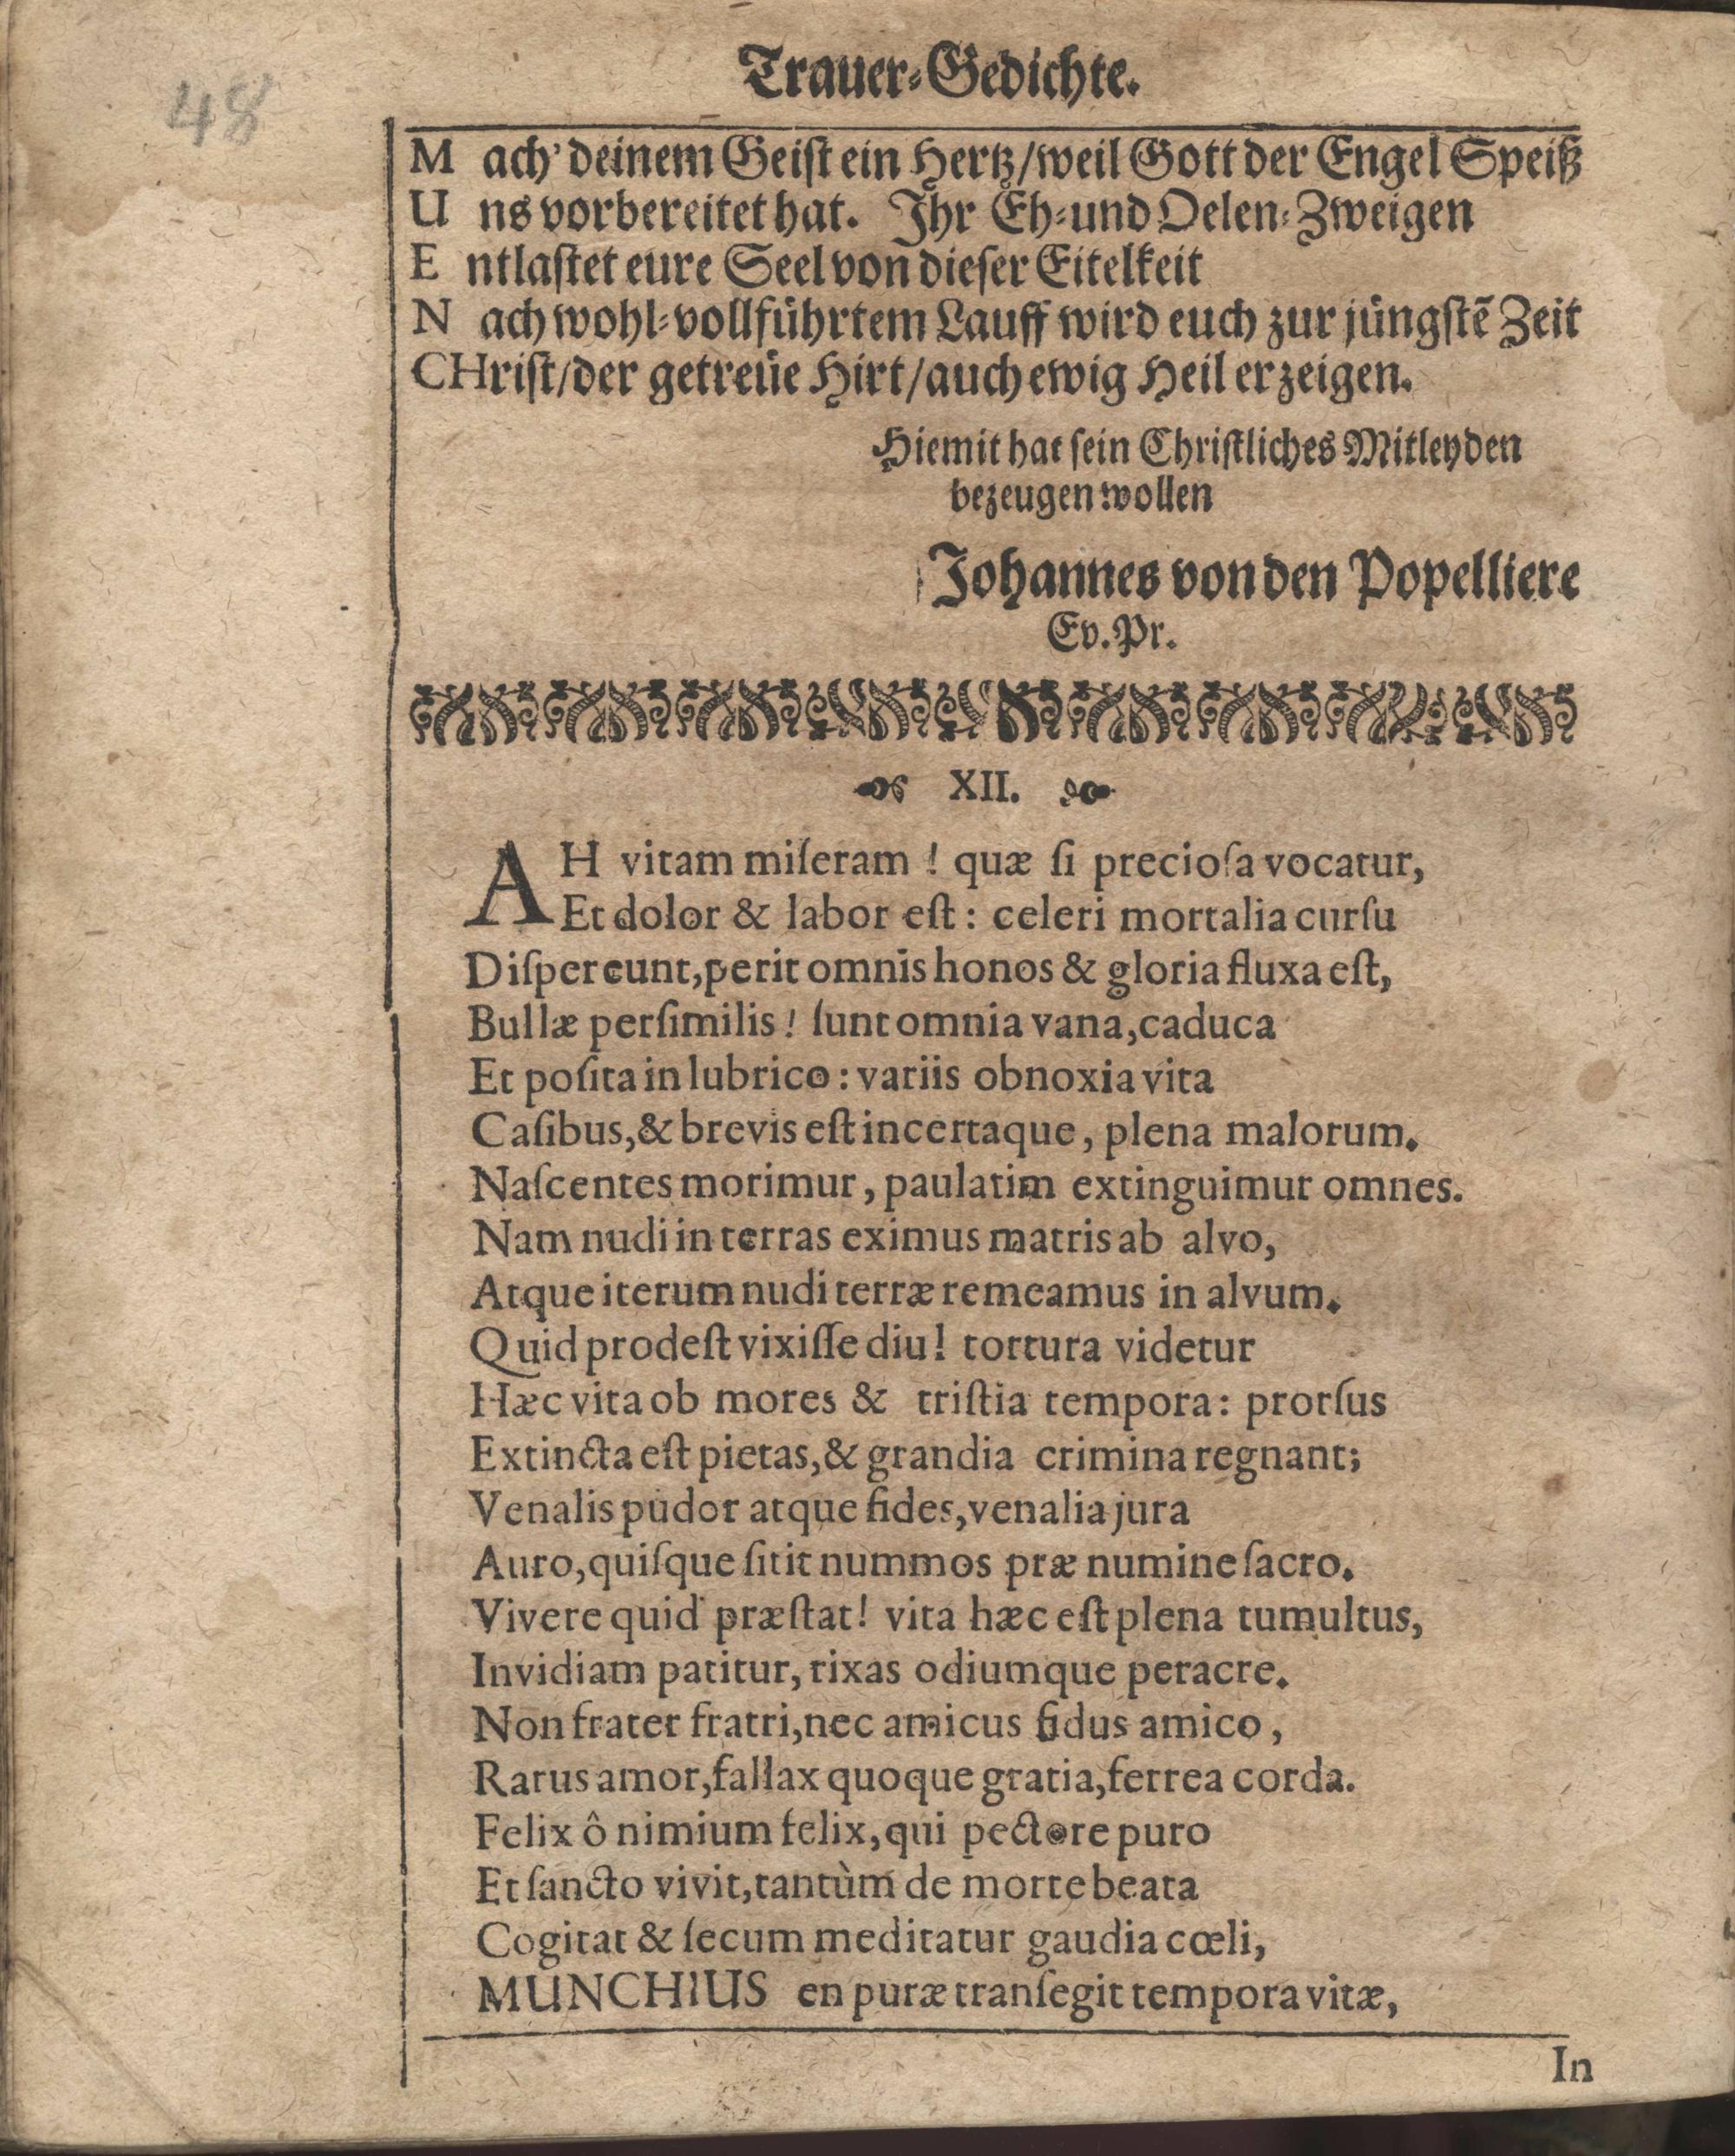 48
Trauer-Gedichte.
M ach' deinem Geiſt ein Hertz/weil Gott der Engel Speiß
U ns vorbereitet hat. Ihr Eh-und Oelen-Zweigen
E ntlaſtet eure Seel von dieſer Eitelkeit
N ach wohl-vollführtem Lauff wird euch zur jüngſtẽ Zeit
CHriſt/der getreüe Hirt/auch ewig Heil erzeigen.
Hiemit hat ſein Chriſtliches Mitleyden
bezeugen wollen
Johannes von den Popelliere
Ev. Pr.
XII.
AH vitam miſeram! quæ ſi precioſa vocatur,
Et dolor & labor eſt: celeri mortalia curſu
Diſpereunt, perit omnis honos & gloria fluxa eſt,
Bullæ perſimilis! ſunt omnia vana, caduca
Et poſita in lubrico: variis obnoxia vita
Caſibus, & brevis eſt incertaque, plena malorum.
Naſcentes morimur, paulatim extinguimur omnes.
Nam nudi in terras eximus matris ab alvo,
Atque iterum nudi terræ remeamus in alvum.
Quid prodeſt vixiſſe diu! tortura videtur
Hæc vita ob mores & triſtia tempora: prorſus
Extincta eſt pietas, & grandia crimina regnant;
Venalis pudor atque fides, venalia jura
Auro, quiſque ſitit nummos præ numine ſacro.
Vivere quid præſtat! vita hæc eſt plena tumultus,
Invidiam patitur, rixas odiumque peracre.
Non frater fratri, nec amicus fidus amico,
Rarus amor, fallax quoque gratia, ferrea corda.
Felix ô nimium felix, qui pectore puro
Et ſancto vivit, tantùm de morte beata
Cogitat & ſecum meditatur gaudia cœli,
MUNCHIUS en puræ tranſegit tempora vitæ,
In